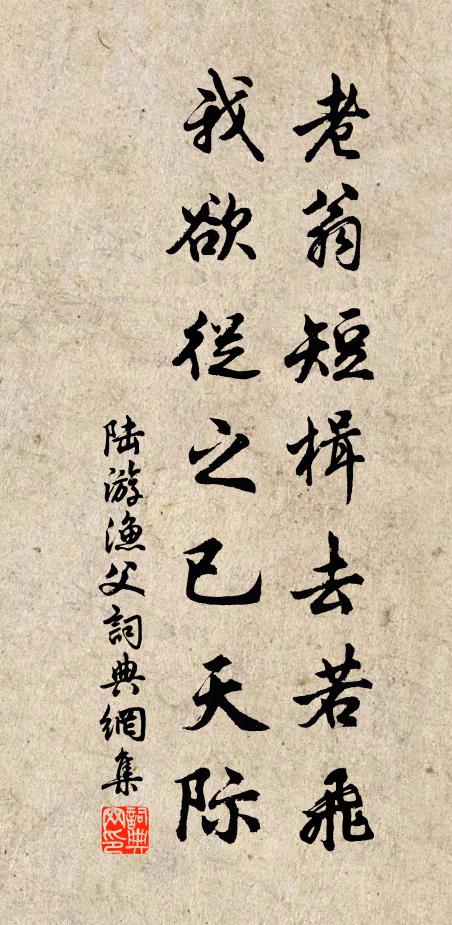 老翁短楫去若飛
我欲從之已天际
陆游漁父詞典網集
詞典网印